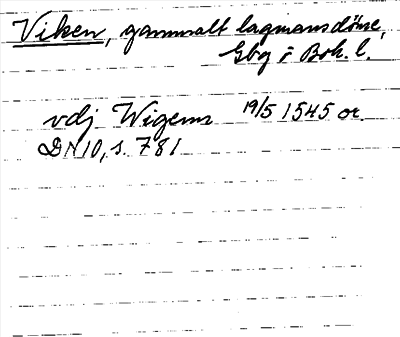 Viken, gammalt lagmansdöme,
Gbg o Boh. l.
vdj Wigenn 19/5 1545 or.
DN 10, s. 781